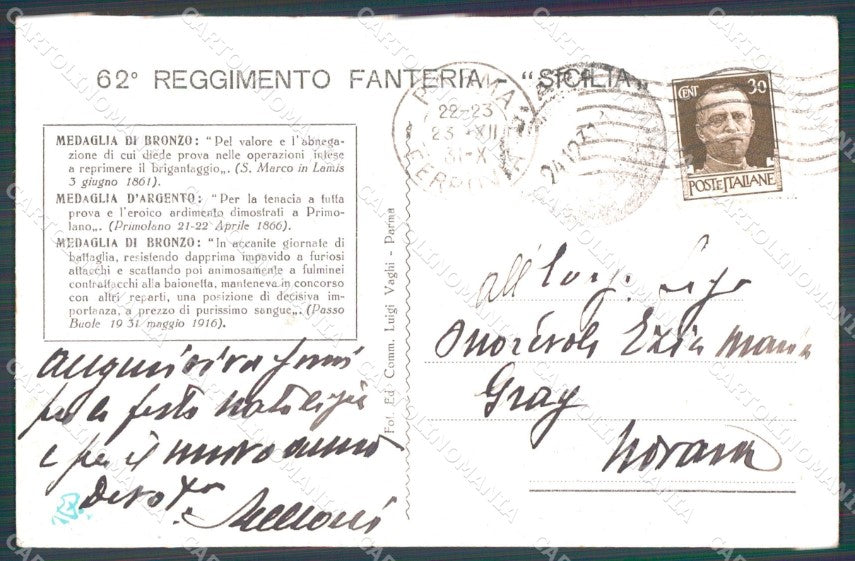 62° REGGIMENTO FANTERIA - "SICILIA"
MEDAGLIA DI BRONZO: "Pel valore e l'abnega-
zione di cui diede prova nelle operazioni intese
a reprimere il brigantaggio„. (S. Marco in Lamis
3 giugno 1861).
MEDAGLIA D'ARGENTO: "Per la tenacia a tutta
prova e l'eroico ardimento dimostrati a Primo-
lano„. (Primolano 21-22 Aprile 1866).
MEDAGLIA DI BRONZO: "In accanite giornate di
battaglia, resistendo dapprima impavido a furiosi
attacchi e scattando poi animosamente a fulminei
contrattacchi alla baionetta, manteneva in concorso
con altri reparti, una posizione di decisiva im-
portanza, a prezzo di purissimo sangue„. (Passo
Buole 19 31 maggio 1916).
per le feste natalizie
e per il nuovo anno
Dev.o
Fot. Ed. Comm. Luigi Vaghi - Parma
22-23
23 XII
31-X
24.12.31
CENT 30
POSTE ITALIANE
all'
Onorevole Ezio Maria
Gray
Novara
CARTOLINOMANIA